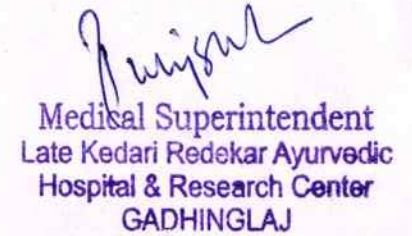 Medical Superintendent
Late Kedari Redekar Ayurvedic
Hospital & Research Center
GADHINGLAJ